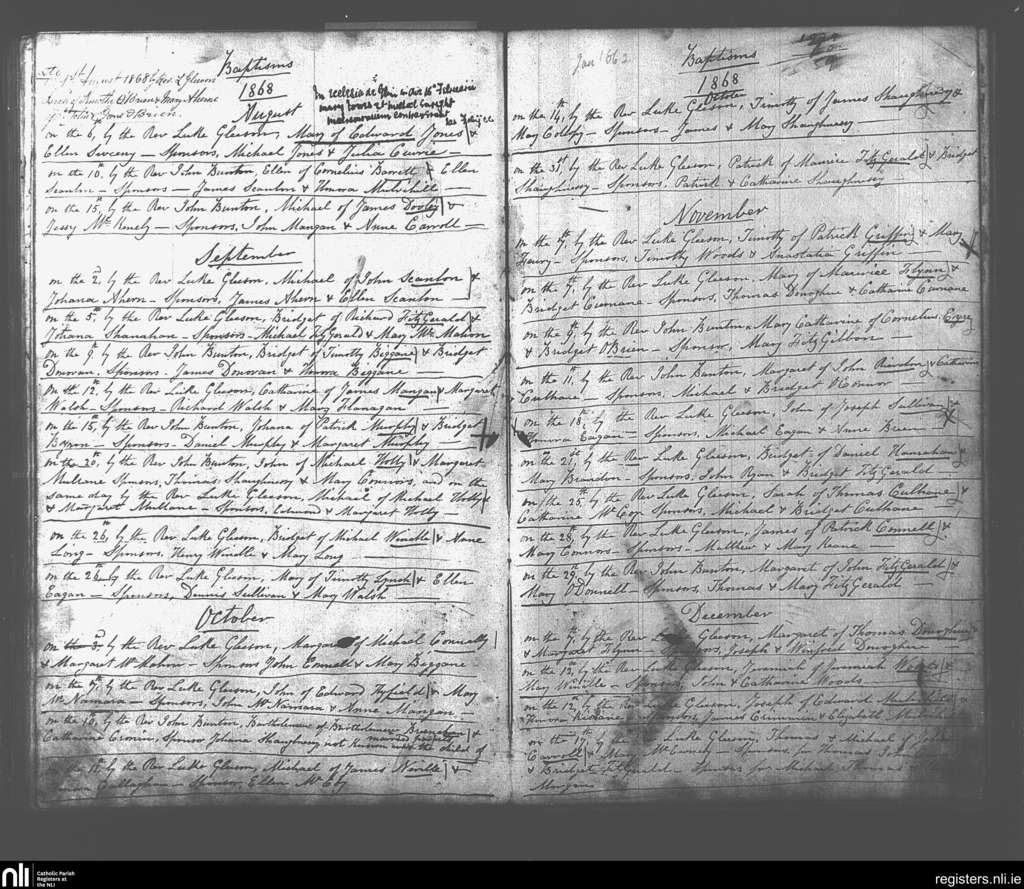 Baptisms
1868
August
1st August 1868 by Rev. L Gleeson
Timothy O'Brien & Mary Aherne
O'Brien.
in ecclesia de Glin die 16 Februarii
on the 6, by the Rev Luke Gleeson, Mary of Edward Jones &
Ellen Sweeny — Sponsors, Michael Jones & Julia Currie —
on the 10, by the Rev John Bunton, Ellen of Cornelius Barrett & Ellen
Scanlon — Sponsors — James Scanlon & Honora Mulvihill —
on the 15, by the Rev John Bunton, Michael of James Dooley &
Jessy McKenely — Sponsors, John Mangan & Anne Carroll —
September
on the 2, by the Rev Luke Gleeson, Michael of John Scanlon &
Johana Ahern — Sponsors, James Ahern & Ellen Scanlon —
on the 5, by the Rev Luke Gleeson, Bridget of Richard FitzGerald &
Johana Shanahan — Sponsors — Michael FitzGerald & Mary McMahon
on the 9, by the Rev John Bunton, Bridget of Timothy Beggane & Bridget
Donovan, Sponsors. James Donovan & Honora Beggane —
on the 12, by the Rev Luke Gleeson, Catharine of James Mangan & Margaret
Walsh — Sponsors — Richard Walsh & Mary Flanagan —
on the 15, by the Rev John Bunton, Johana of Patrick Murphy & Bridget
— Sponsors — Daniel Murphy & Margaret Murphy —
on the 20, by the Rev John Bunton, John of Michael Holly & Margaret
Mullane Sponsors, Thomas Shaughnessy & Mary Connors, and on the
same day by the Rev Luke Gleeson, Michael of Michael Holly &
& Margaret Mullane — Sponsors, Edmond & Margaret Holly —
on the 26, by the Rev Luke Gleeson, Bridget of Michael Windle & Anne
Long — Sponsors, Henry Windle & Mary Long —
on the 26, by the Rev Luke Gleeson, Mary of Timothy Lynch & Ellen
Eagan — Sponsors, Dennis Sullivan & Mary Walsh —
October
on the 3, by the Rev Luke Gleeson, Margaret of Michael Connolly
& Margaret McMahon — Sponsors John Connell & Mary Beggane
on the 7, by the Rev Luke Gleeson, John of Edward Hyfield & Mary
McNamara — Sponsors, John McNamara & Anne Mangan —
on the 10, by the Rev John Bunton, Bartholomew of Bartholomew &
Catharine Cronin, Sponsor Johana Shaughnessy not the child of
on the 11, by the Rev Luke Gleeson, Michael of James Neville & —
Callaghan — Sponsor, Ellen McCoy.
Jan 1862
Baptisms
1868
October
on the 14, by the Rev Luke Gleeson, Timothy of James Shaughnessy &
Mary Collopy — Sponsors — James & Mary Shaughnessy
on the 31, by the Rev Luke Gleeson, Patrick of Maurice FitzGerald & Bridget
Shaughnessy — Sponsors, Patrick & Catharine Shaughnessy
November
on the 7, by the Rev Luke Gleeson, Timothy of Patrick Griffin & Mary
— Sponsors, Timothy Woods & Anastatia Griffin —
on the 7, by the Rev Luke Gleeson, Mary of Maurice Flynn &
Bridget Cunnane — Sponsors, Thomas Donoghue & Catharine Cunnane
on the 9, by the Rev John Bunton, Mary Catharine of Cornelius
& Bridget O'Brien — Sponsor, Mary FitzGibbon —
on the 11, by the Rev John Bunton, Margaret of John Riordon & Catharine
Culhane — Sponsors, Michael & Bridget O'Connor
on the 18, by the Rev Luke Gleeson, John of Joseph Sullivan &
Honora Eagan — Sponsors, Michael Eagan & Anne Breen
on the 21, by the Rev Luke Gleeson, Bridget of Daniel Hanrahan &
Mary Brandon — Sponsors, John Ryan & Bridget FitzGerald —
on the 25, by the Rev Luke Gleeson, Sarah of Thomas Culhane &
Catharine McCoy Sponsors, Michael & Bridget Culhane
on the 28, by the Rev Luke Gleeson, James of Patrick Connell &
Mary Connors — Sponsors — Matthew & Mary Keane —
on the 29, by the Rev John Bunton, Margaret of John FitzGerald &
Mary O'Donnell — Sponsors, Thomas & Mary FitzGerald —
December
on the 7, by the Rev Luke Gleeson, Margaret of Thomas Donoghue
& Margaret Flynn — Sponsors, Joseph & Winifred Donoghue
on the 13, by the Rev Luke Gleeson, Jeremiah of Jeremiah Woods &
Mary Windle — Sponsors, John & Catharine Woods
on the 12, by the Rev Luke Gleeson, Joseph of Edward
Honora — Sponsors, James & Elizabeth
on the 17, by the Rev Luke Gleeson, Thomas of Michael
— Sponsors for Thomas
& Bridget FitzGerald — Sponsors for Michael, Thomas
Mangan
nli
Catholic Parish
Registers at
the NLI
registers.nli.ie